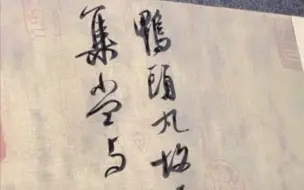 鴨頭丸故
集當与